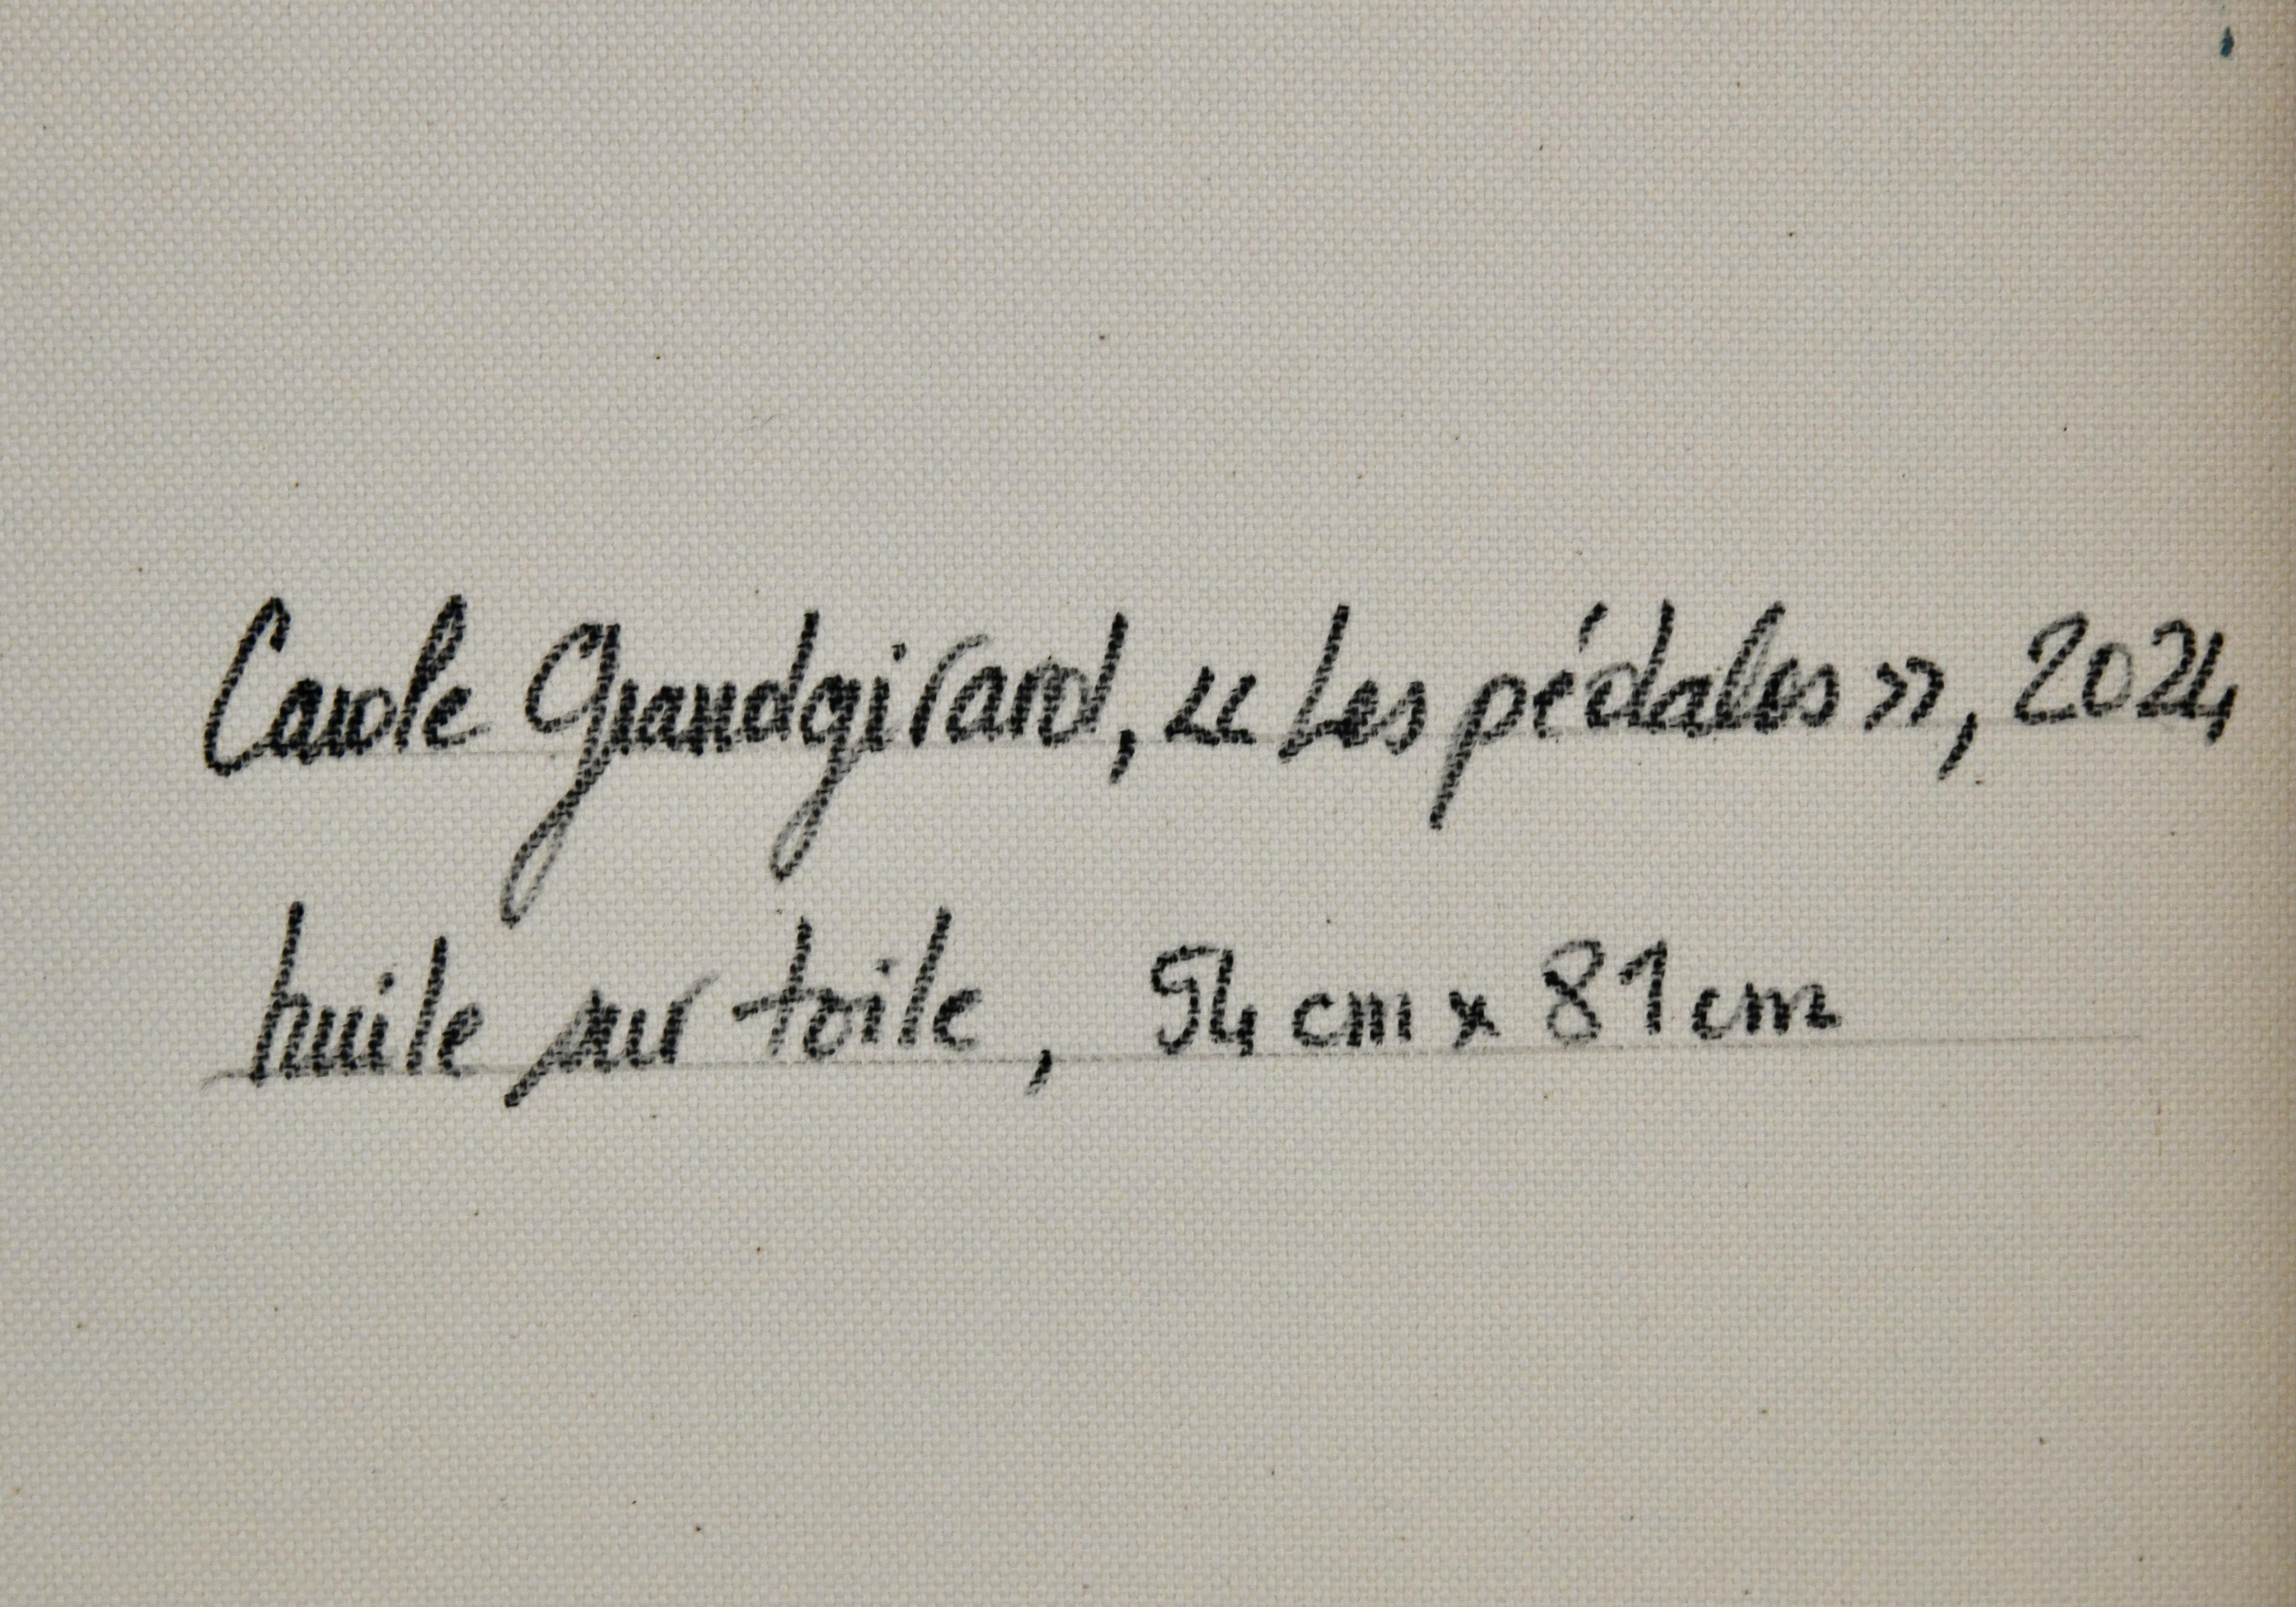 Carole Grandgirard, « Les pédalos », 2024
huile sur toile, 54 cm x 81 cm